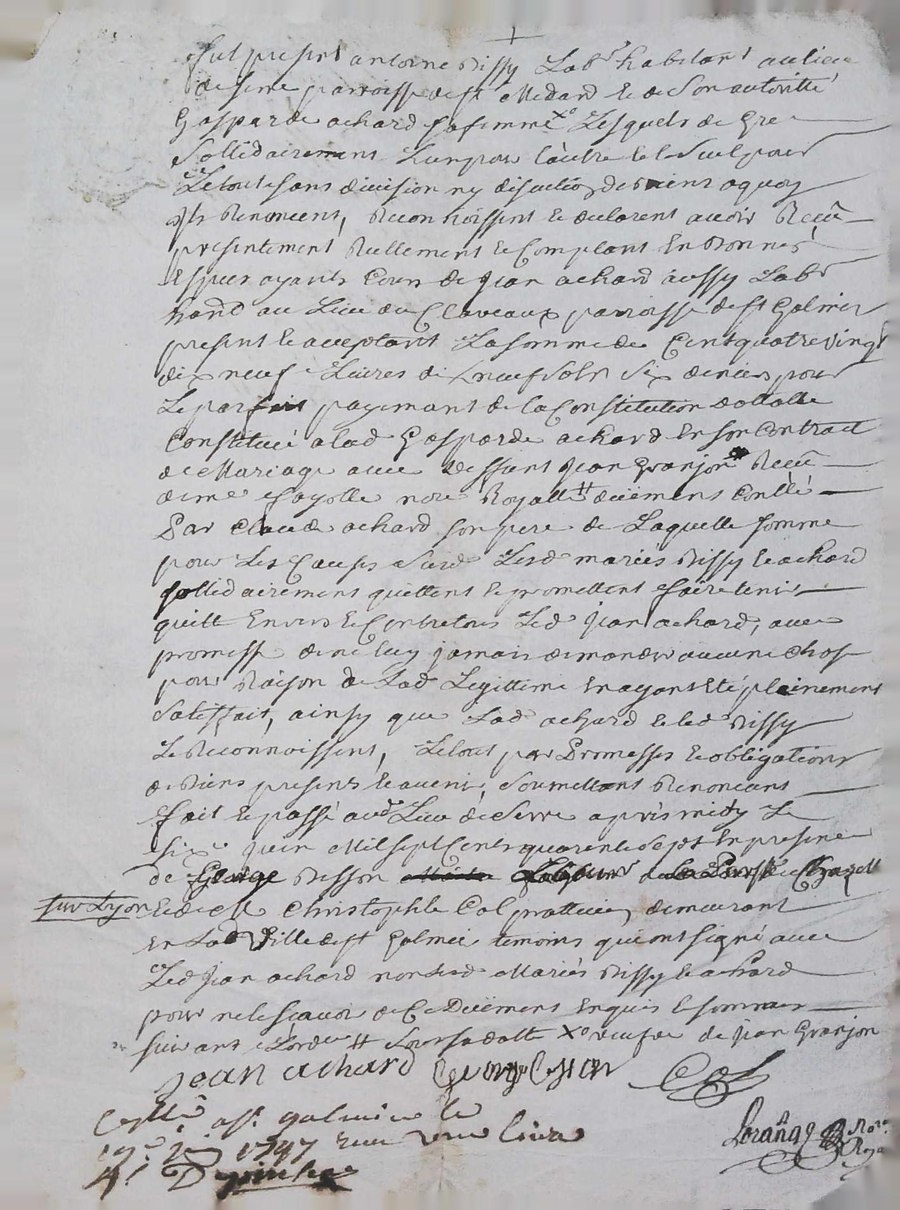 fut present antoine Bissy Lab.r habitant au lieu
de serre parroisse de st Medard Et de Son autorité
Gasparde achard sa femme x° Lesquels de gre
Sollidairement Lun pour lautre Et le Seul pour
Le tout sans division ny discution de biens a quoy
ils Renoncent, Reconnoissent Et declarent avoir Recû
presentement Reellement Et Comptant En bonnes
Especes ayants Cours de Jean achard aussy Lab.r
hant au Lieu des Claveaux parroisse de st Galmier
present Et acceptant La somme de Cent quatre vingt
dix neuf Livres dix neuf Sols Six deniers pour
Le parfait payement de la Constitution dottalle
Constitué a lad Gasparde achard En son Contract
de Mariage avec deffunt Jean Granjon Recû
de me fayolle no.re Royall # düement Conllé
Par Claude achard son pere de Laquelle somme
pour Les Causes Susd Lesd mariés Bissy Et achard
sollidairement quittent Et promettent faire tenir
quitte Envers Et Contre tous Led Jean achard, avec
promesse de ne luy jamais demander aucune chose
pour Raison de Lad Legittime En ayant Eté pleinement
Satisfait, ainsy que Lad achard Et led Bissy
Le Reconnoissent, Le tout par Promesses Et obligations
de Biens presents Et avenir, Soumettant Renoncant
fait Et passé aud Lieu de Serre apres midy Le
six.e Juin Mil sept Cents quarente sept En presence
de George Besson de La Parsse de Chazelle
sur Lyon Et de Me Christophle Colprattier, demeurant
En Lad Ville de st Galmier temoins qui ont signé avec
Led Jean achard non Lesd Mariés Bissy Et achard
pour ne le scavoir de Ce Düement Enquis Et sommés
Suivant Lord.ce # Sous sa datte x° veufve de Jean Granjon
jean achard George Besson
Conllé a st galmier le
19e juin 1747 recu une livre
Lorañge No.re Roya